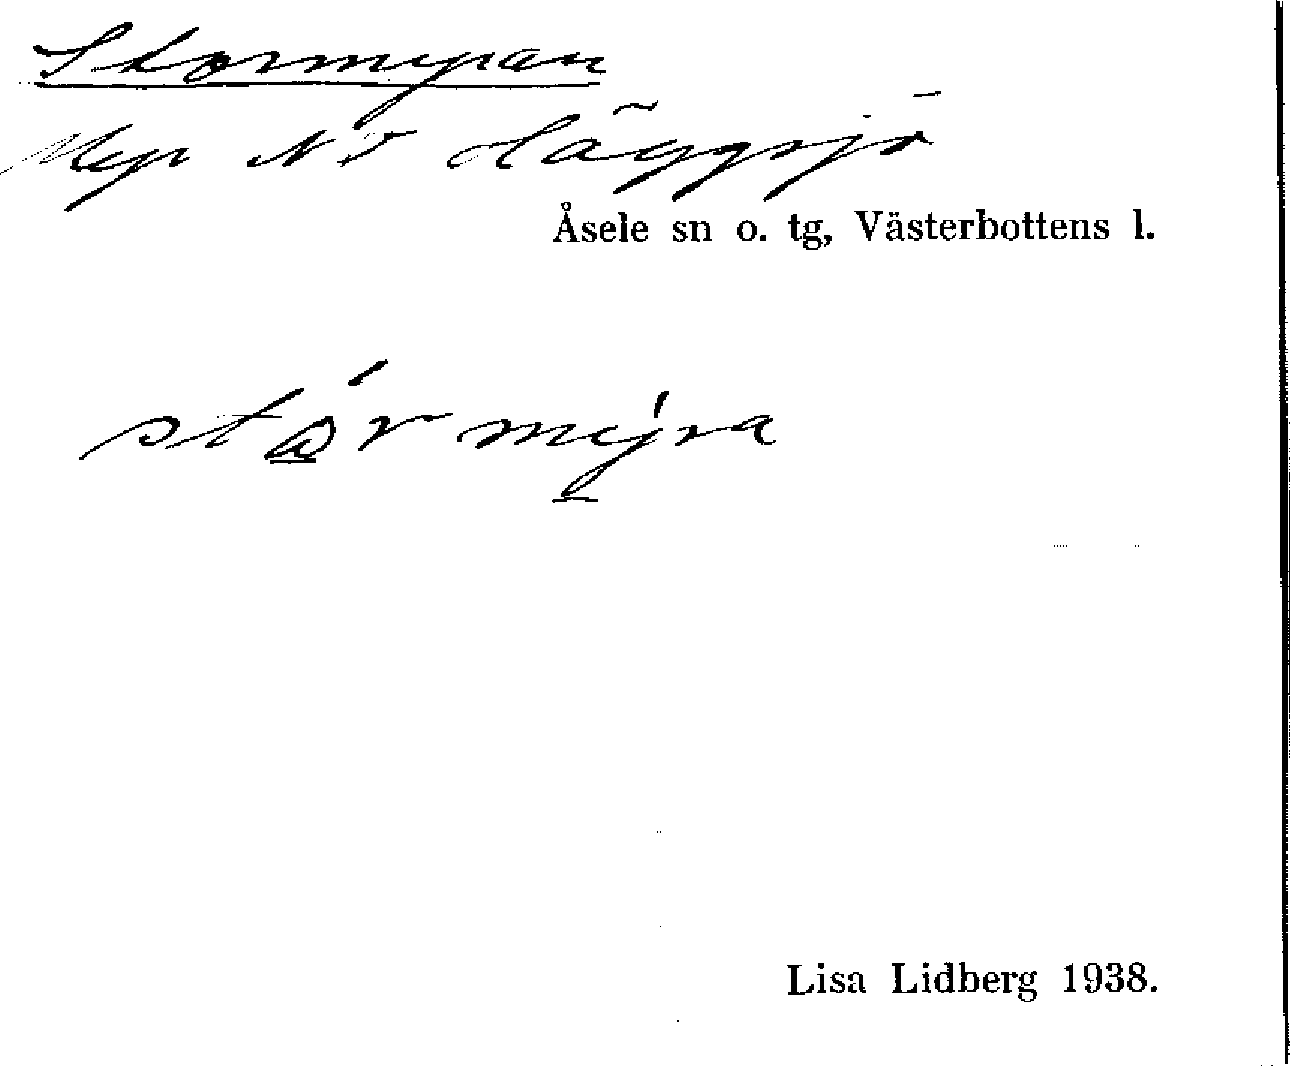 Stormyran
Myr NV Häggsjö
Åsele sn o. tg, Västerbottens l.
stó̲r mý̲ra
Lisa Lidberg 1938.